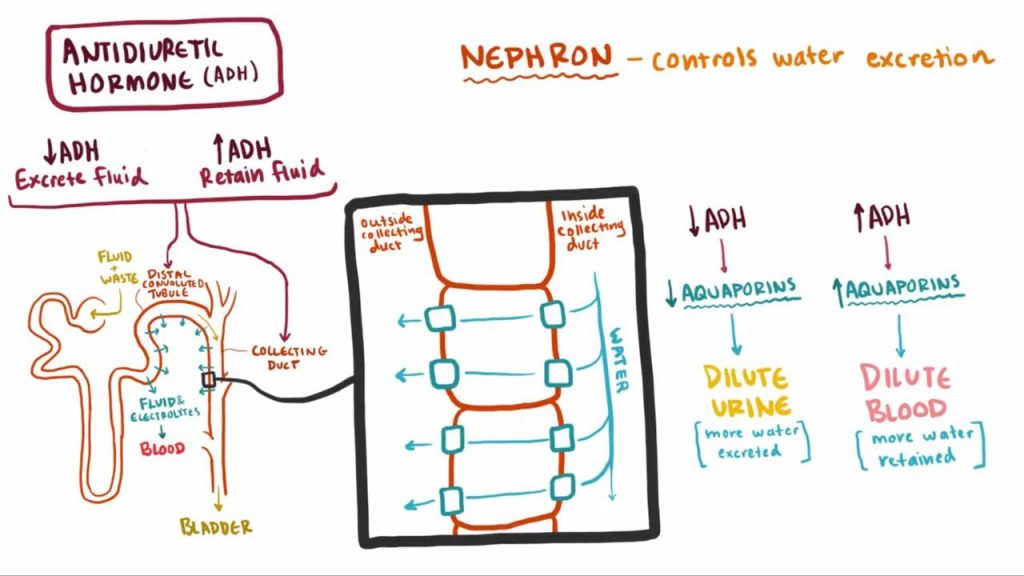 ANTIDIURETIC
HORMONE (ADH)
NEPHRON - CONTROLS WATER EXCRETION
↓ADH
Excrete fluid
↑ADH
Retain fluid
FLUID
+
WASTE
DISTAL
CONVOLUTED
TUBULE
COLLECTING
DUCT
FLUID &
ELECTROLYTES
BLOOD
BLADDER
Outside
collecting
duct
Inside
collecting
duct
WATER
↓ADH
↓AQUAPORINS
DILUTE
URINE
[more water
excreted]
↑ADH
↑AQUAPORINS
DILUTE
BLOOD
[more water
retained]